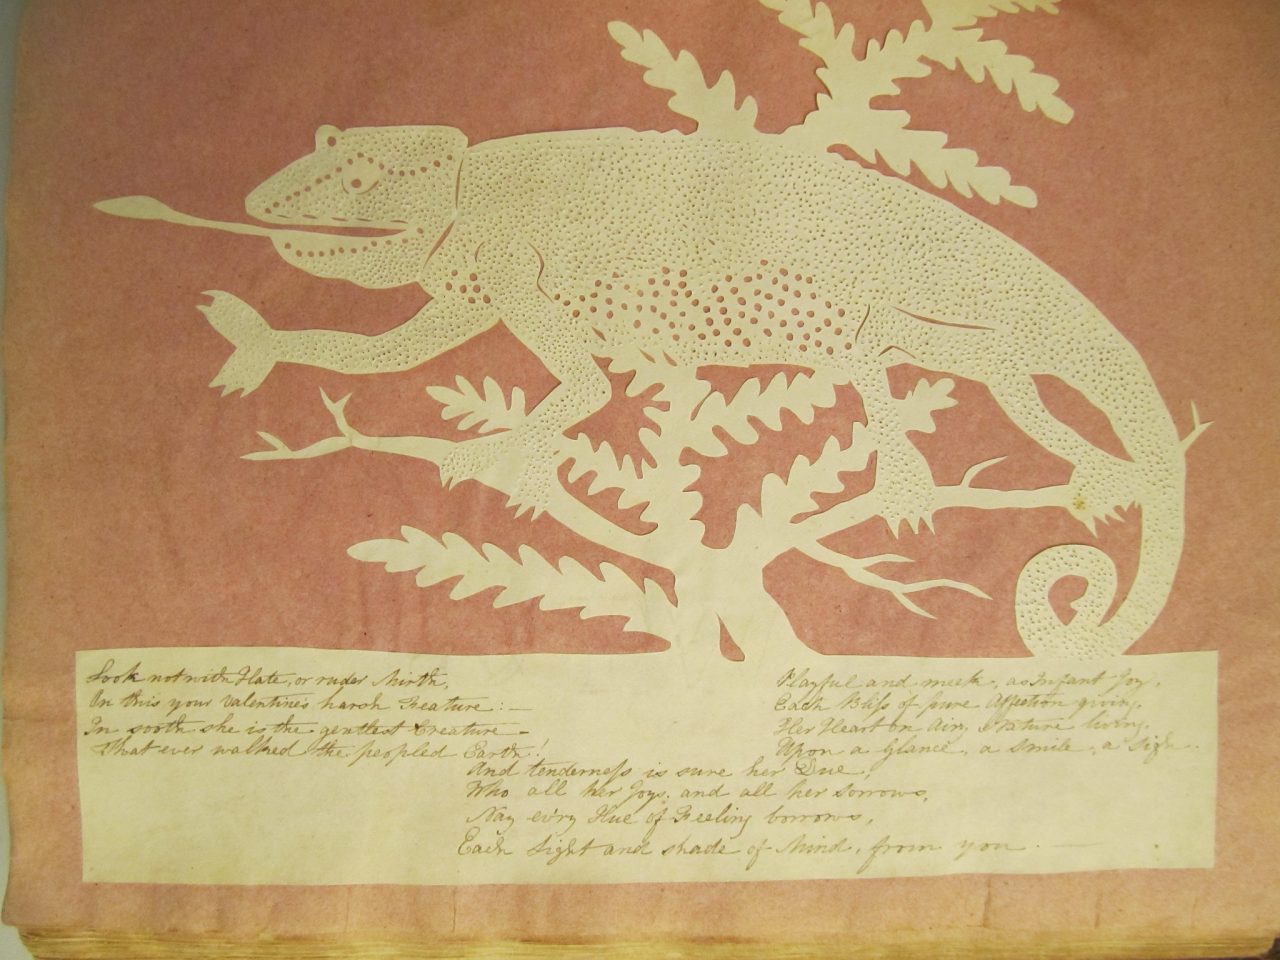 Look not with Hate, or ruder Mirth,
On this your Valentine's harsh Feature: —
In sooth she is the gentlest Creature —
That ever walked the peopled Earth!
Playful and meek, as Infant Joy,
Each Bliss of pure Affection giving,
Her Heart on Airy Nature living,
Upon a glance, a smile, a Sigh —
And tenderness is sure her Due,
Who all her Joys, and all her sorrows,
Nay ev'ry Hue of Feeling borrows,
Each Light and shade of Mind, from you. —